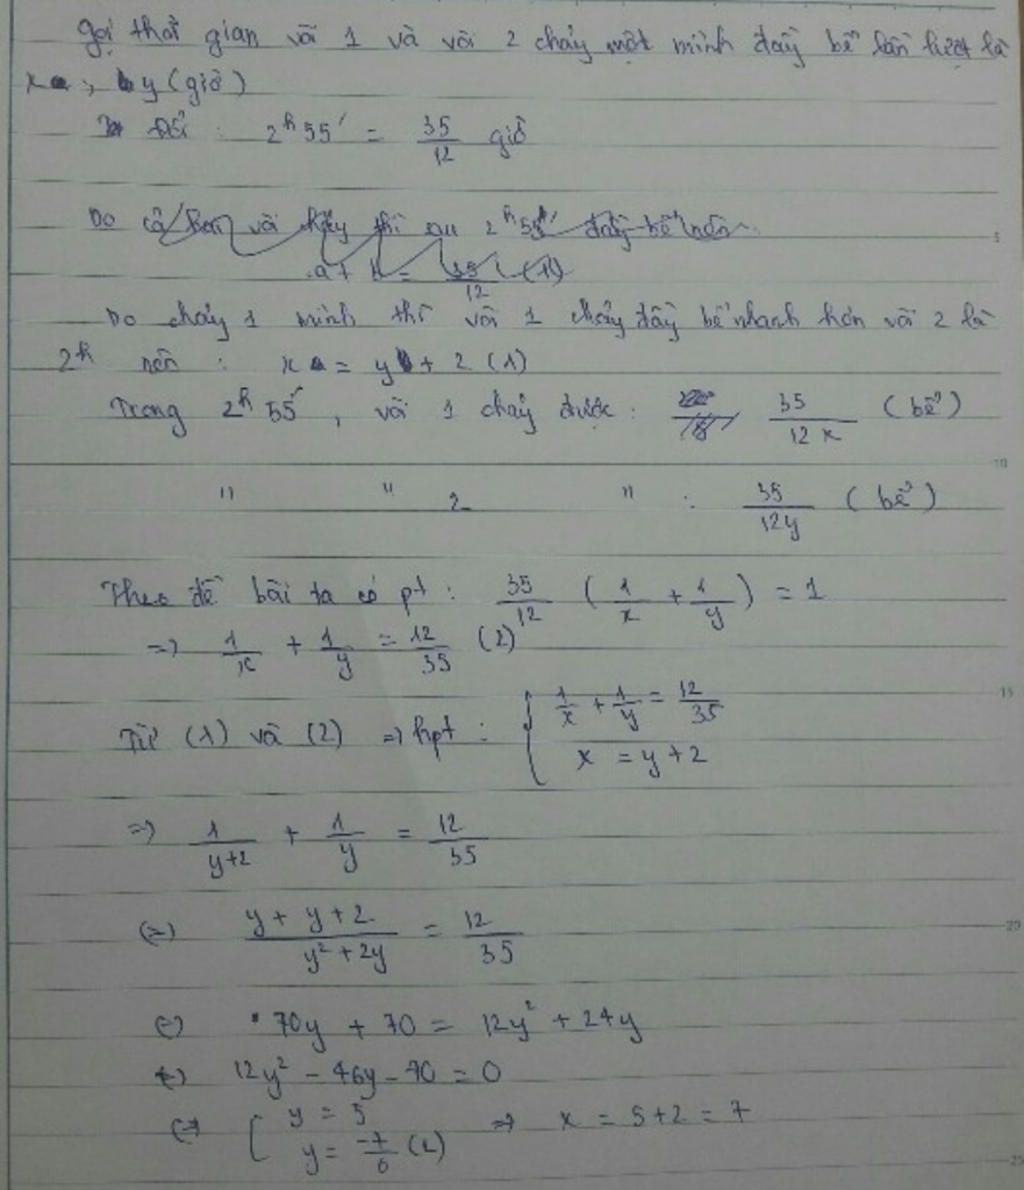 Gọi thời gian vòi 1 và vòi 2 chảy một mình đầy bể lần lượt là
x, y (giờ)
Đổi : 2h55' = 35/12 giờ
Do cả hai vòi chảy thì sau 2h55' đầy bể nên
a + b = 35/12 (1)
Do chảy 1 mình thì vòi 1 chảy đầy bể nhanh hơn vòi 2 là
2h nên : x = y + 2 (1)
Trong 2h55', vòi 1 chảy được : 35/12x (bể)
" " 2 " : 35/12y (bể)
Theo đề bài ta có pt : 35/12 (1/x + 1/y) = 1
=> 1/x + 1/y = 12/35 (2)
Từ (1) và (2) => hpt : { 1/x + 1/y = 12/35
x = y + 2
=> 1/y+2 + 1/y = 12/35
(=) y + y + 2 / y² + 2y = 12/35
(=) 70y + 70 = 12y² + 24y
(=) 12y² - 46y - 70 = 0
(=) [ y = 5 => x = 5 + 2 = 7
y = -7/6 (L)